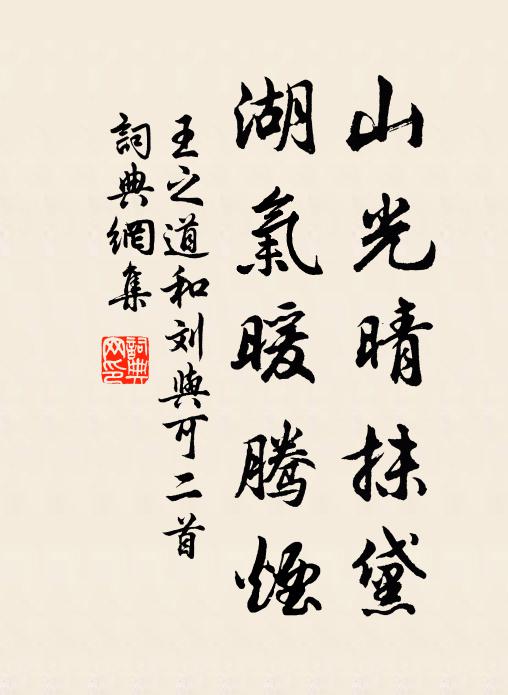 山光晴抹黛
湖氣暖騰煙
王之道和刘與可二首
詞典網集
詞典網印